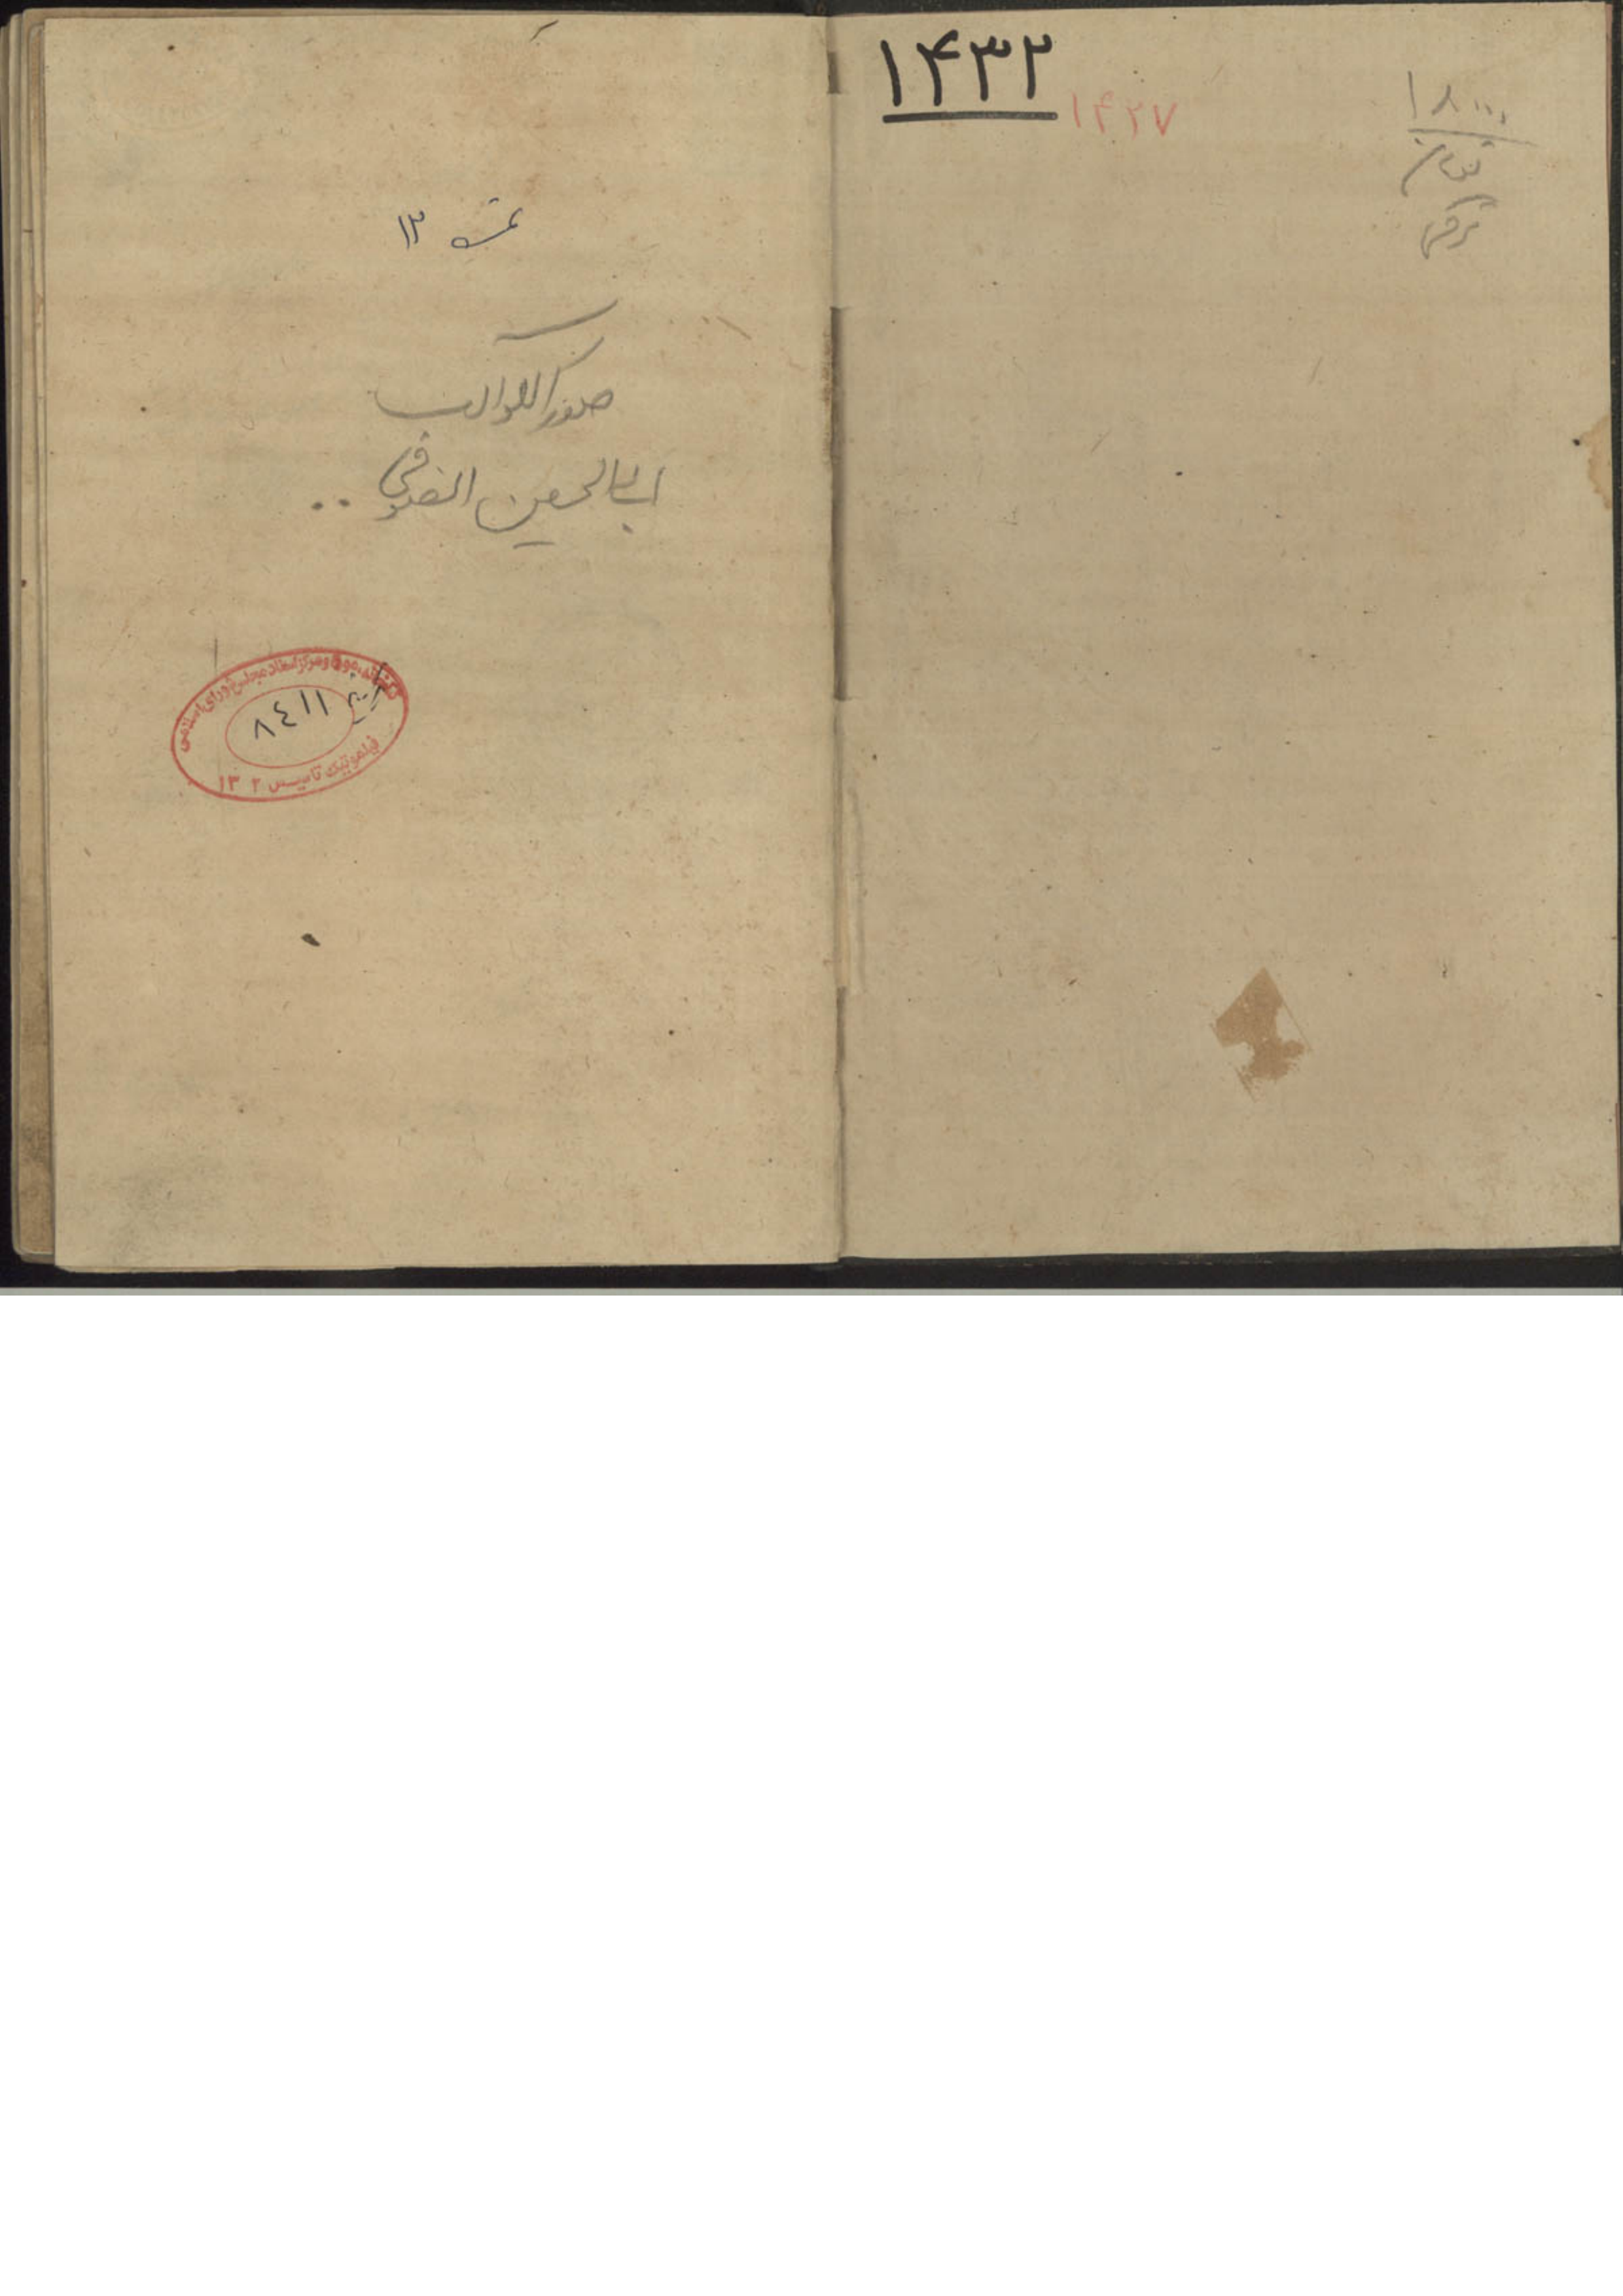 ۱۴۳۲
۱۴۲۷
۱۸۰۰۰
تومان
ترقی
۱۳
صور الکواکب
ابی الحسین الصوفی ..
کتابخانه، موزه و مرکز اسناد مجلس شورای اسلامی
۸٤۱۱
فیلموتیک تاسیس ۱۳۰۲